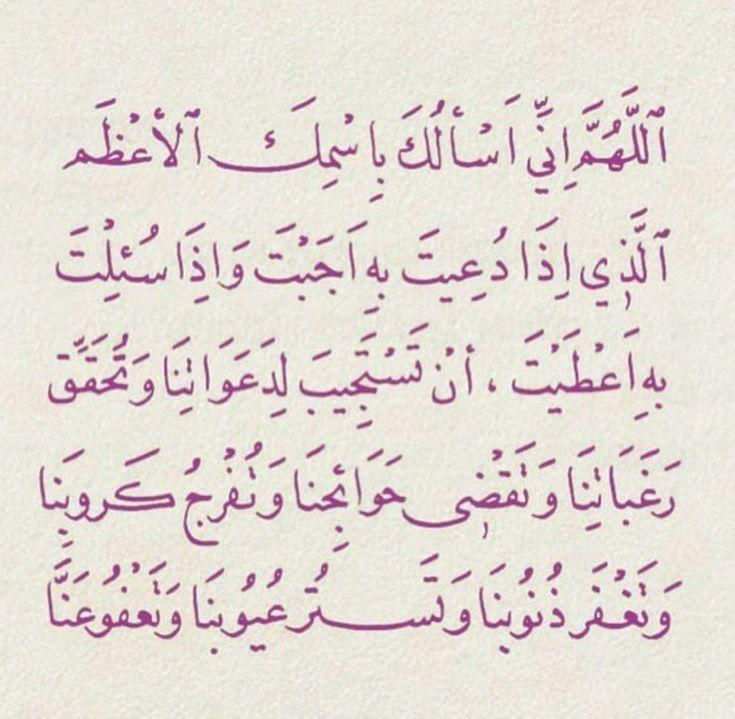 ٱللَّهُمَّ إِنِّي اَسْأَلُكَ بِاسْمِكَ ٱلأعْظَم
ٱلَّذِي اِذَا دُعِيتَ بِهِ اَجَبْتَ وَاِذَا سُئِلْتَ
بِهِ اَعْطَيْتَ ، أنْ تَسْتَجِيبَ لِدَعَوَاتِنَا وَتُحَقِّق
رَغَبَاتِنَا وَتَقْضِى حَوَائِجِنَا وَتُفْرِجُ كَروبِنِا
وَتَغْفَر ذُنُوُبِنَا وَتَستُر عُيُوُبِنَا وَتَعْفُو عَنَّا